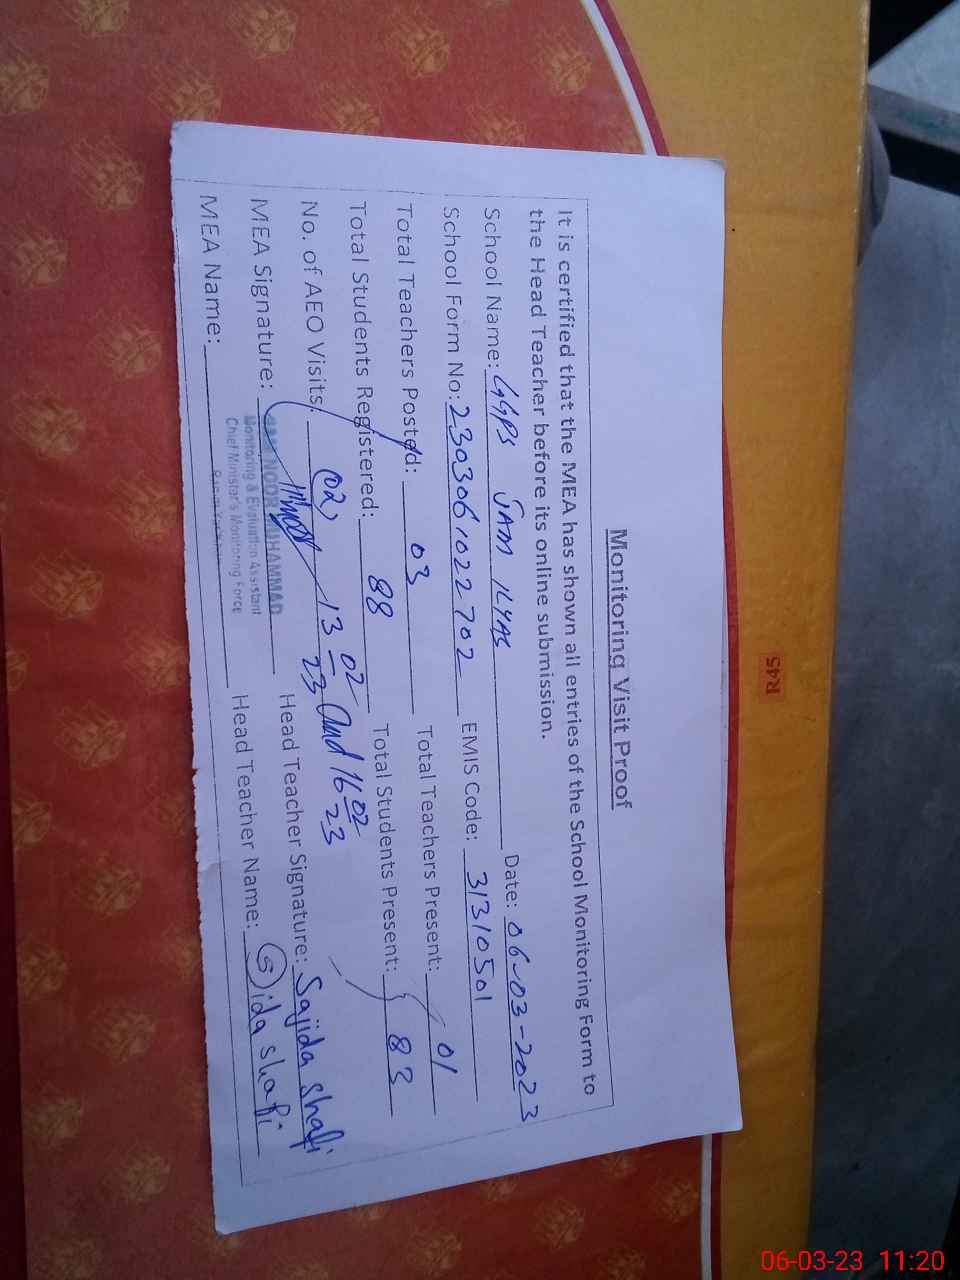 Monitoring Visit Proof
It is certified that the MEA has shown all entries of the School Monitoring Form to
the Head Teacher before its online submission.
School Name: GGPS JAM ILYAS Date: 06-03-2023
School Form No: 2303061022702 EMIS Code: 31310501
Total Teachers Posted: 03 Total Teachers Present: 01
Total Students Registered: 88 Total Students Present: 83
No. of AEO Visits: 02, 13 02 23 and 16 02 23
MEA Signature: Head Teacher Signature: Sajida Shafi
NOOR MUHAMMAD
Monitoring & Evaluation Assistant
Chief Minister's Monitoring Force
MEA Name: Head Teacher Name: Sajida Shafi
R45
06-03-23 11:20